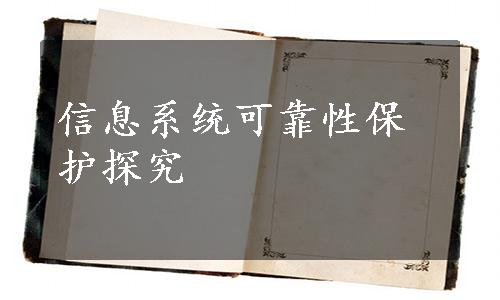 信息系统可靠性保
护探究